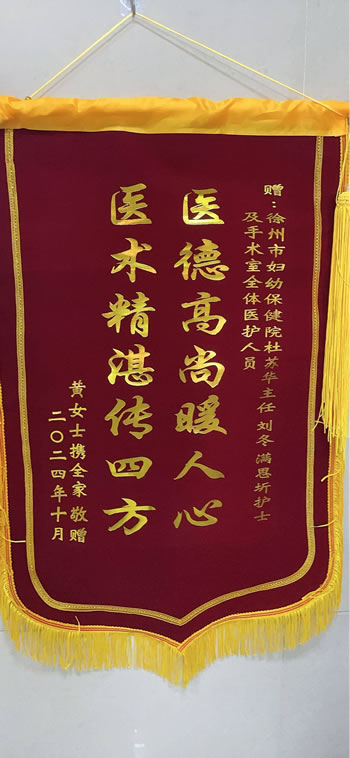 赠：徐州市妇幼保健院杜苏华主任 刘冬 满思圻护士
及手术室全体医护人员
医德高尚暖人心
医术精湛传四方
黄女士携全家敬赠
二〇二四年十月